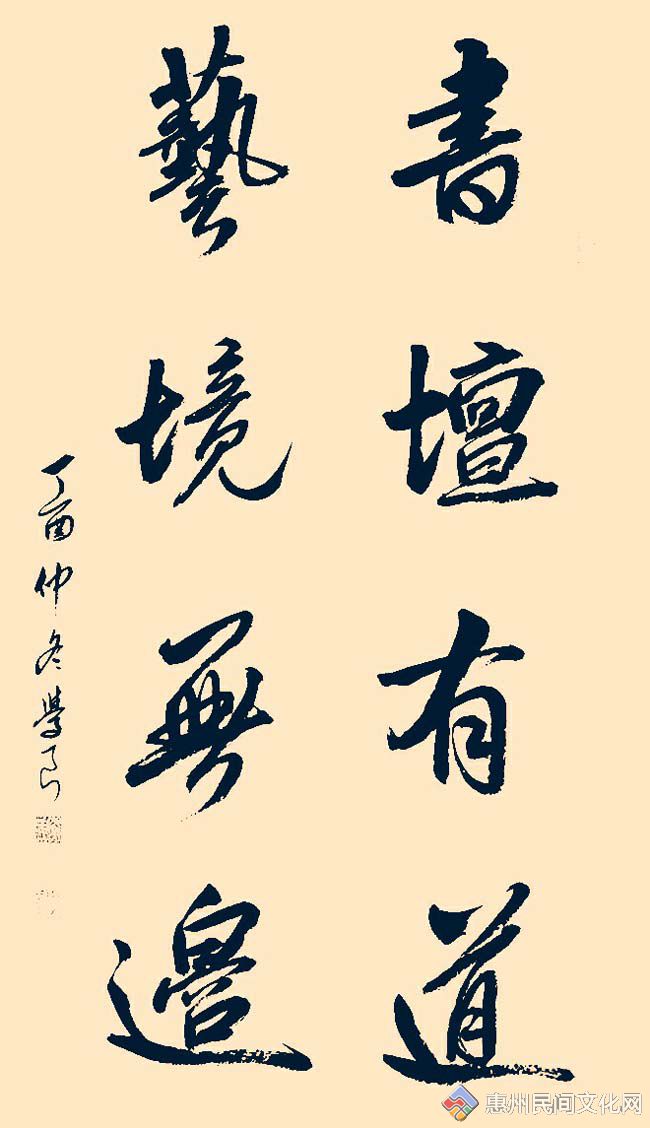 書壇有道
藝境無邊
丁酉仲冬學良
惠州民间文化网